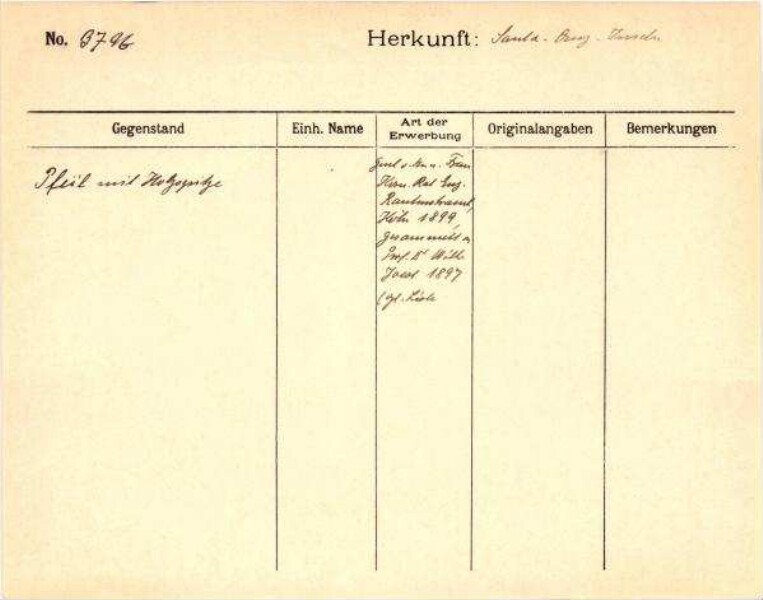 No. 3796
Herkunft: Santa-Cruz-Inseln
Gegenstand
Einh. Name
Art der
Erwerbung
Originalangaben
Bemerkungen
Pfeil mit Holzspitze
Frau
Rat Eug.
Rautenstrauch,
Köln 1899
gesammelt v.
Prof. Dr Wilh.
Joest 1897
(vgl. Liste